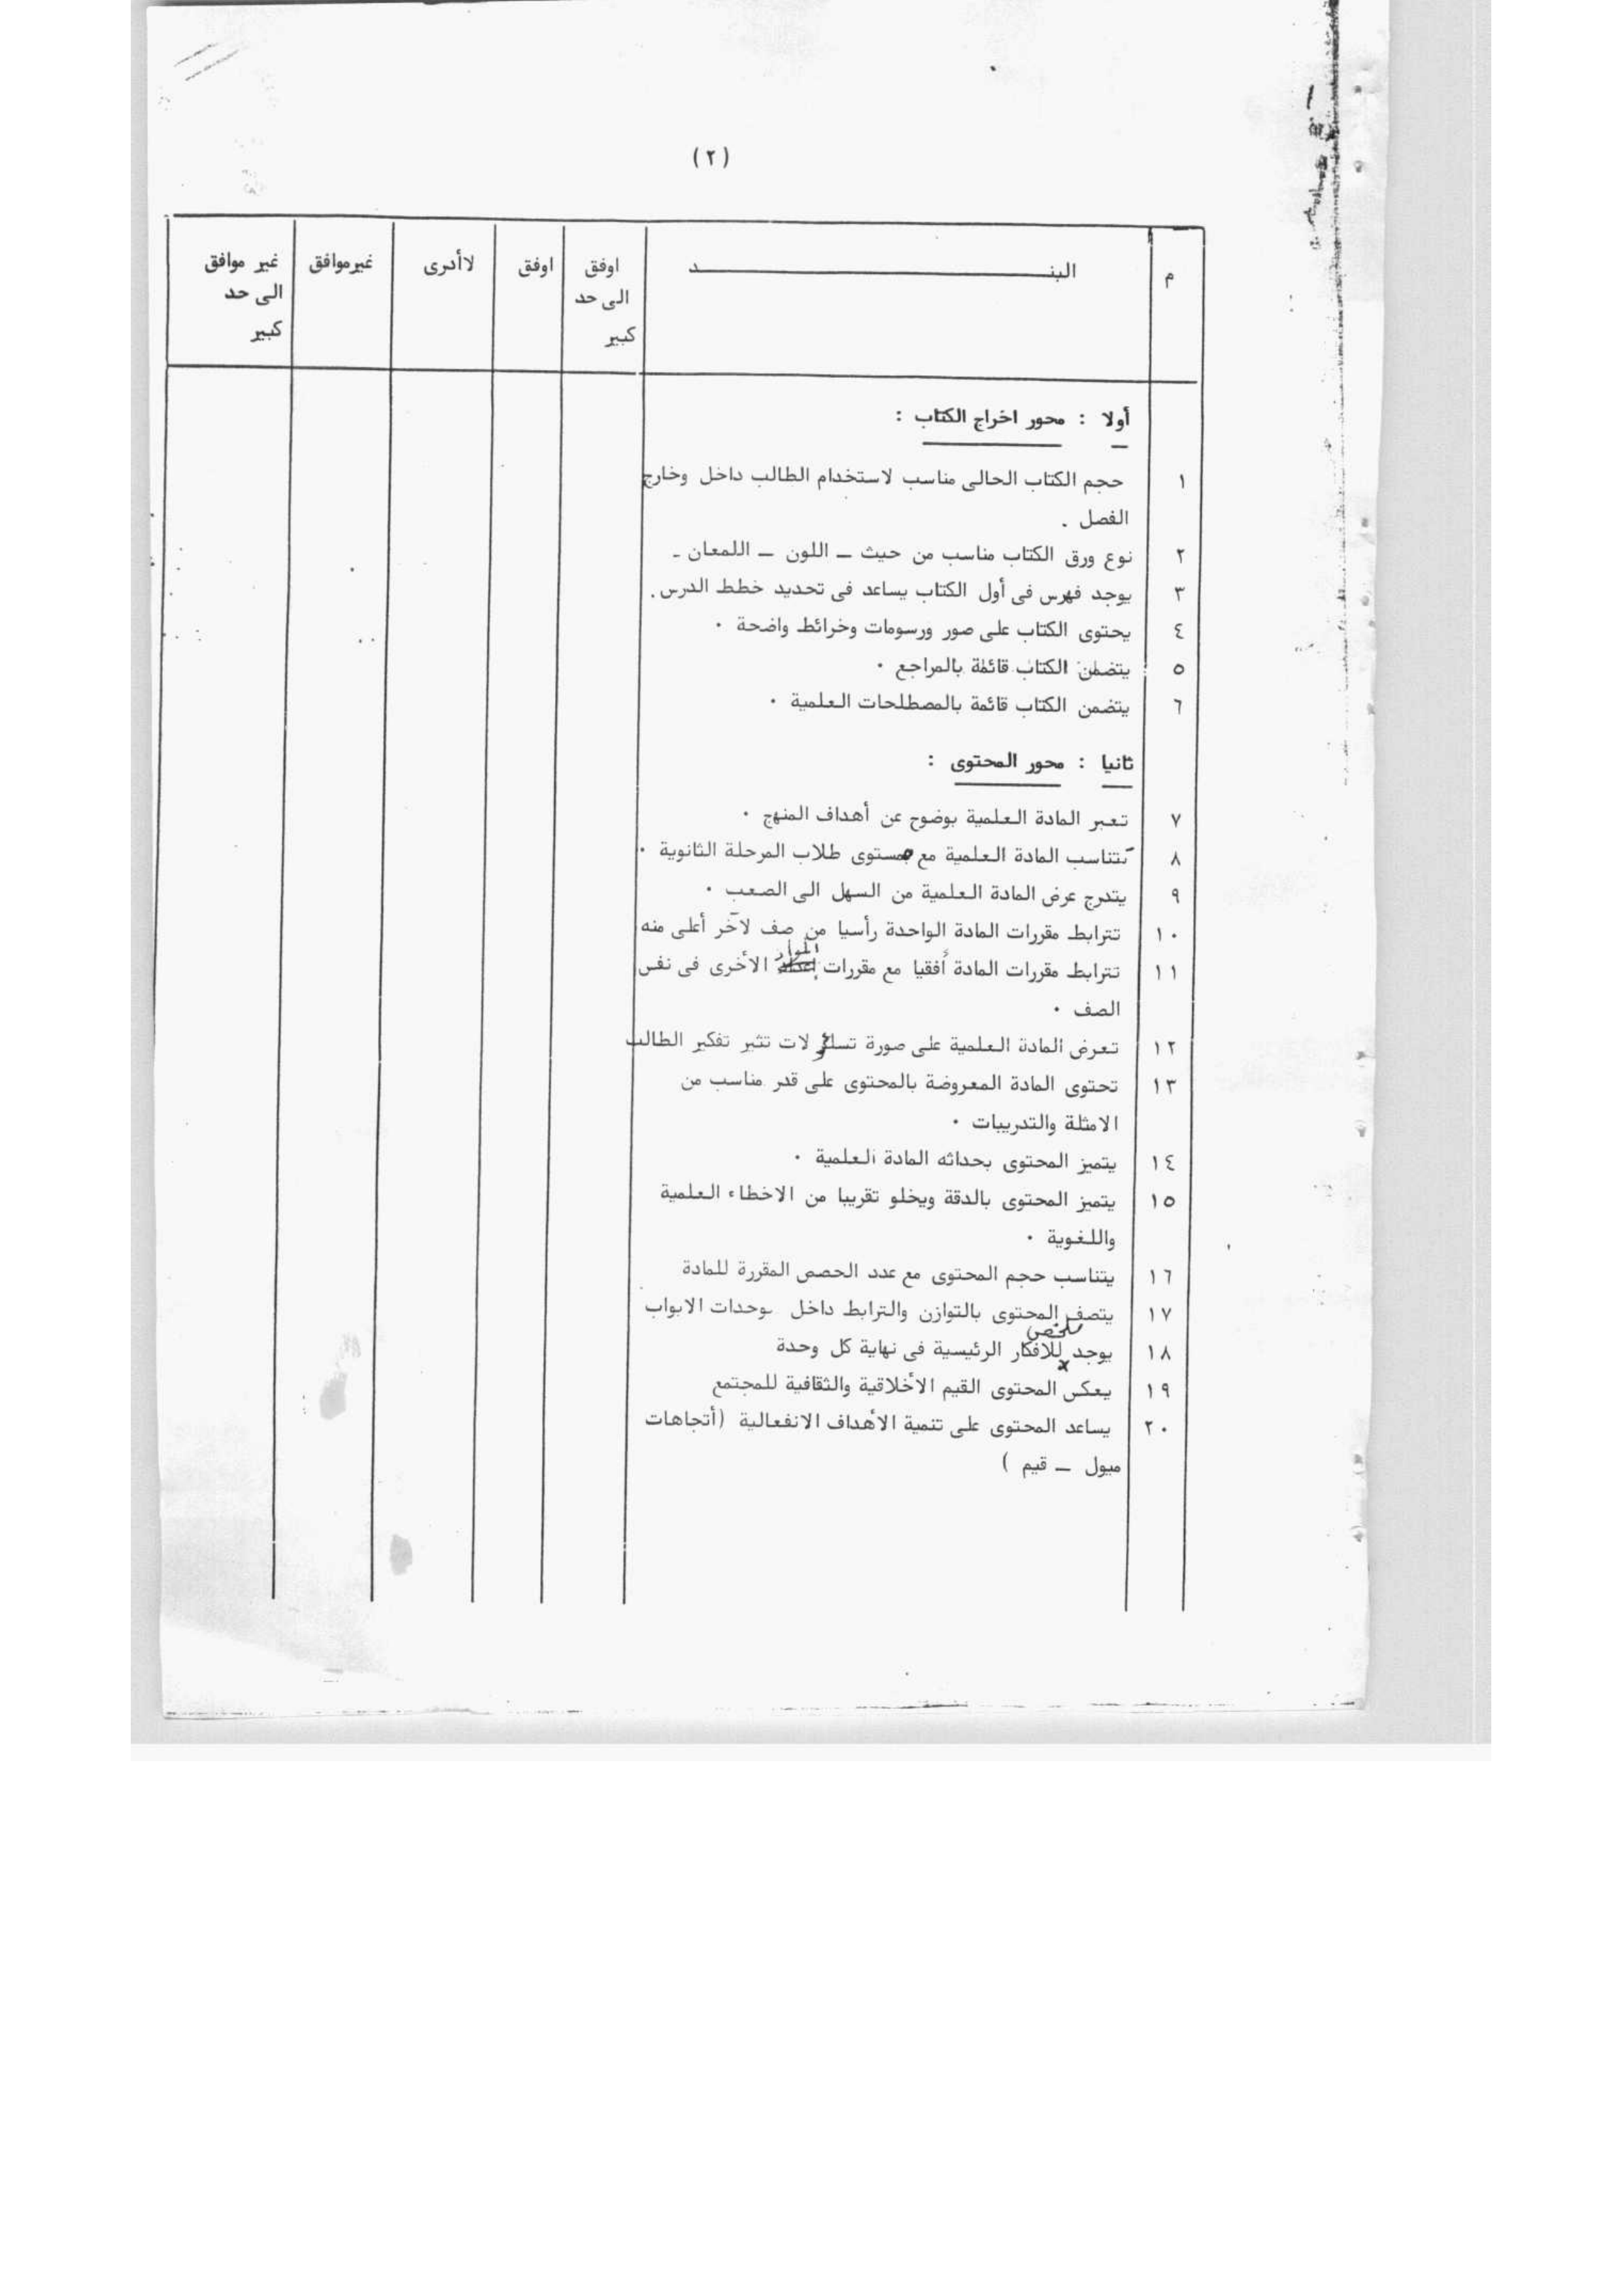 (٢)
م البنـــــــد اوفق الى حد كبير اوفق لاأدرى غيرموافق غير موافق الى حد كبير
أولا : محور اخراج الكتاب :
١ حجم الكتاب الحالى مناسب لاستخدام الطالب داخل وخارج
الفصل .
٢ نوع ورق الكتاب مناسب من حيث ــ اللون ــ اللمعان ـ
٣ يوجد فهرس فى أول الكتاب يساعد فى تحديد خطط الدرس .
٤ يحتوى الكتاب على صور ورسومات وخرائط واضحة ٠
٥ يتضمن الكتاب قائمة بالمراجع ٠
٦ يتضمن الكتاب قائمة بالمصطلحات العلمية ٠
ثانيا : محور المحتوى :
٧ تعبر المادة العلمية بوضوح عن أهداف المنهج ٠
٨ تتناسب المادة العلمية مع مستوى طلاب المرحلة الثانوية ٠
٩ يتدرج عرض المادة العلمية من السهل الى الصعب ٠
١٠ تترابط مقررات المادة الواحدة رأسيا من صف لآخر أعلى منه
١١ تترابط مقررات المادة أفقيا مع مقررات المواد الأخرى فى نفس
الصف ٠
١٢ تعرض المادة العلمية على صورة تساؤلات تثير تفكير الطالب
١٣ تحتوى المادة المعروضة بالمحتوى على قدر مناسب من
الامثلة والتدريبات ٠
١٤ يتميز المحتوى بحداثه المادة العلمية ٠
١٥ يتميز المحتوى بالدقة ويخلو تقريبا من الاخطاء العلمية
واللغوية ٠
١٦ يتناسب حجم المحتوى مع عدد الحصص المقررة للمادة
١٧ يتصف المحتوى بالتوازن والترابط داخل بوحدات الابواب
١٨ يوجد ملخص للافكار الرئيسية فى نهاية كل وحدة
١٩ يعكس المحتوى القيم الأخلاقية والثقافية للمجتمع
٢٠ يساعد المحتوى على تنمية الأهداف الانفعالية (أتجاهات
ميول ــ قيم )